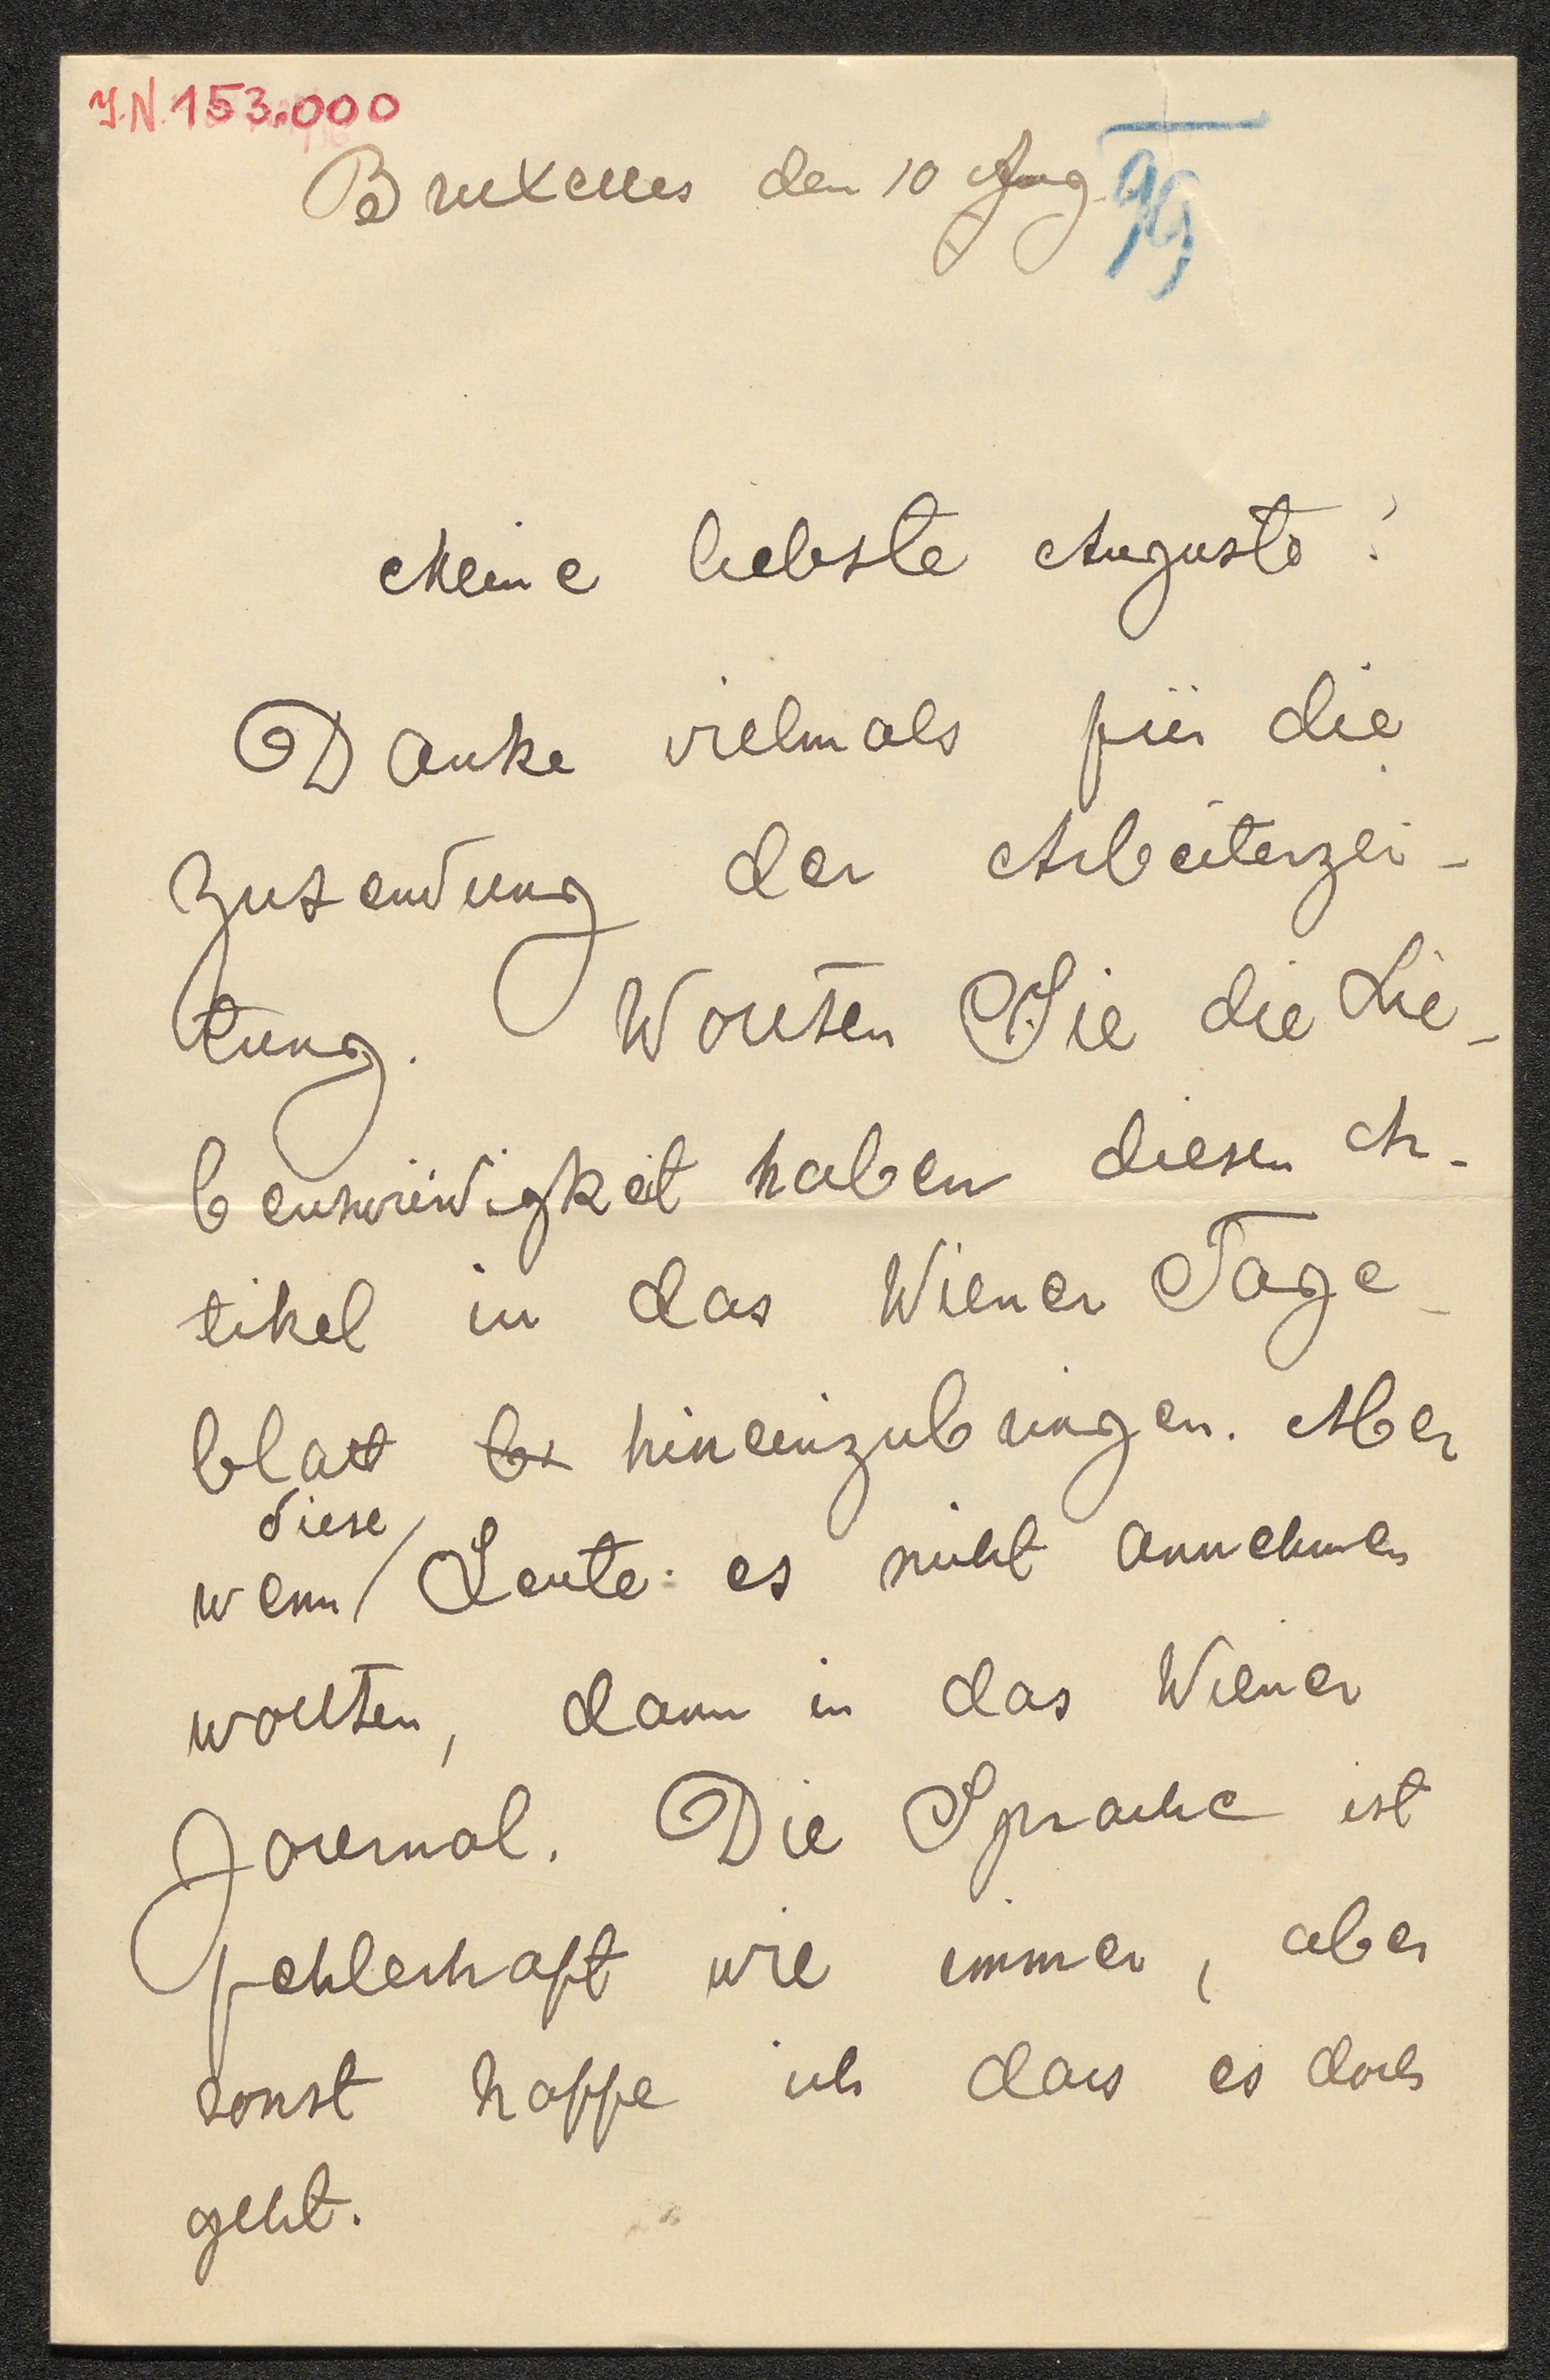 J.N. 153.000
Bruxelles den 10 Aug. 99
Meine liebste Auguste!
Danke vielmals für die
Zusendung der Arbeiterzei-
tung. Wollten Sie die Lie-
benswürdigkeit haben diesen Ar-
tikel in das Wiener Tage-
blatt be hineinzubringen. Aber
diese
wenn / Leute es nicht annehmen
wollten, dann in das Wiener
Journal. Die Sprache ist
fehlerhaft wie immer, aber
sonst hoffe ich dass es doch
geht.